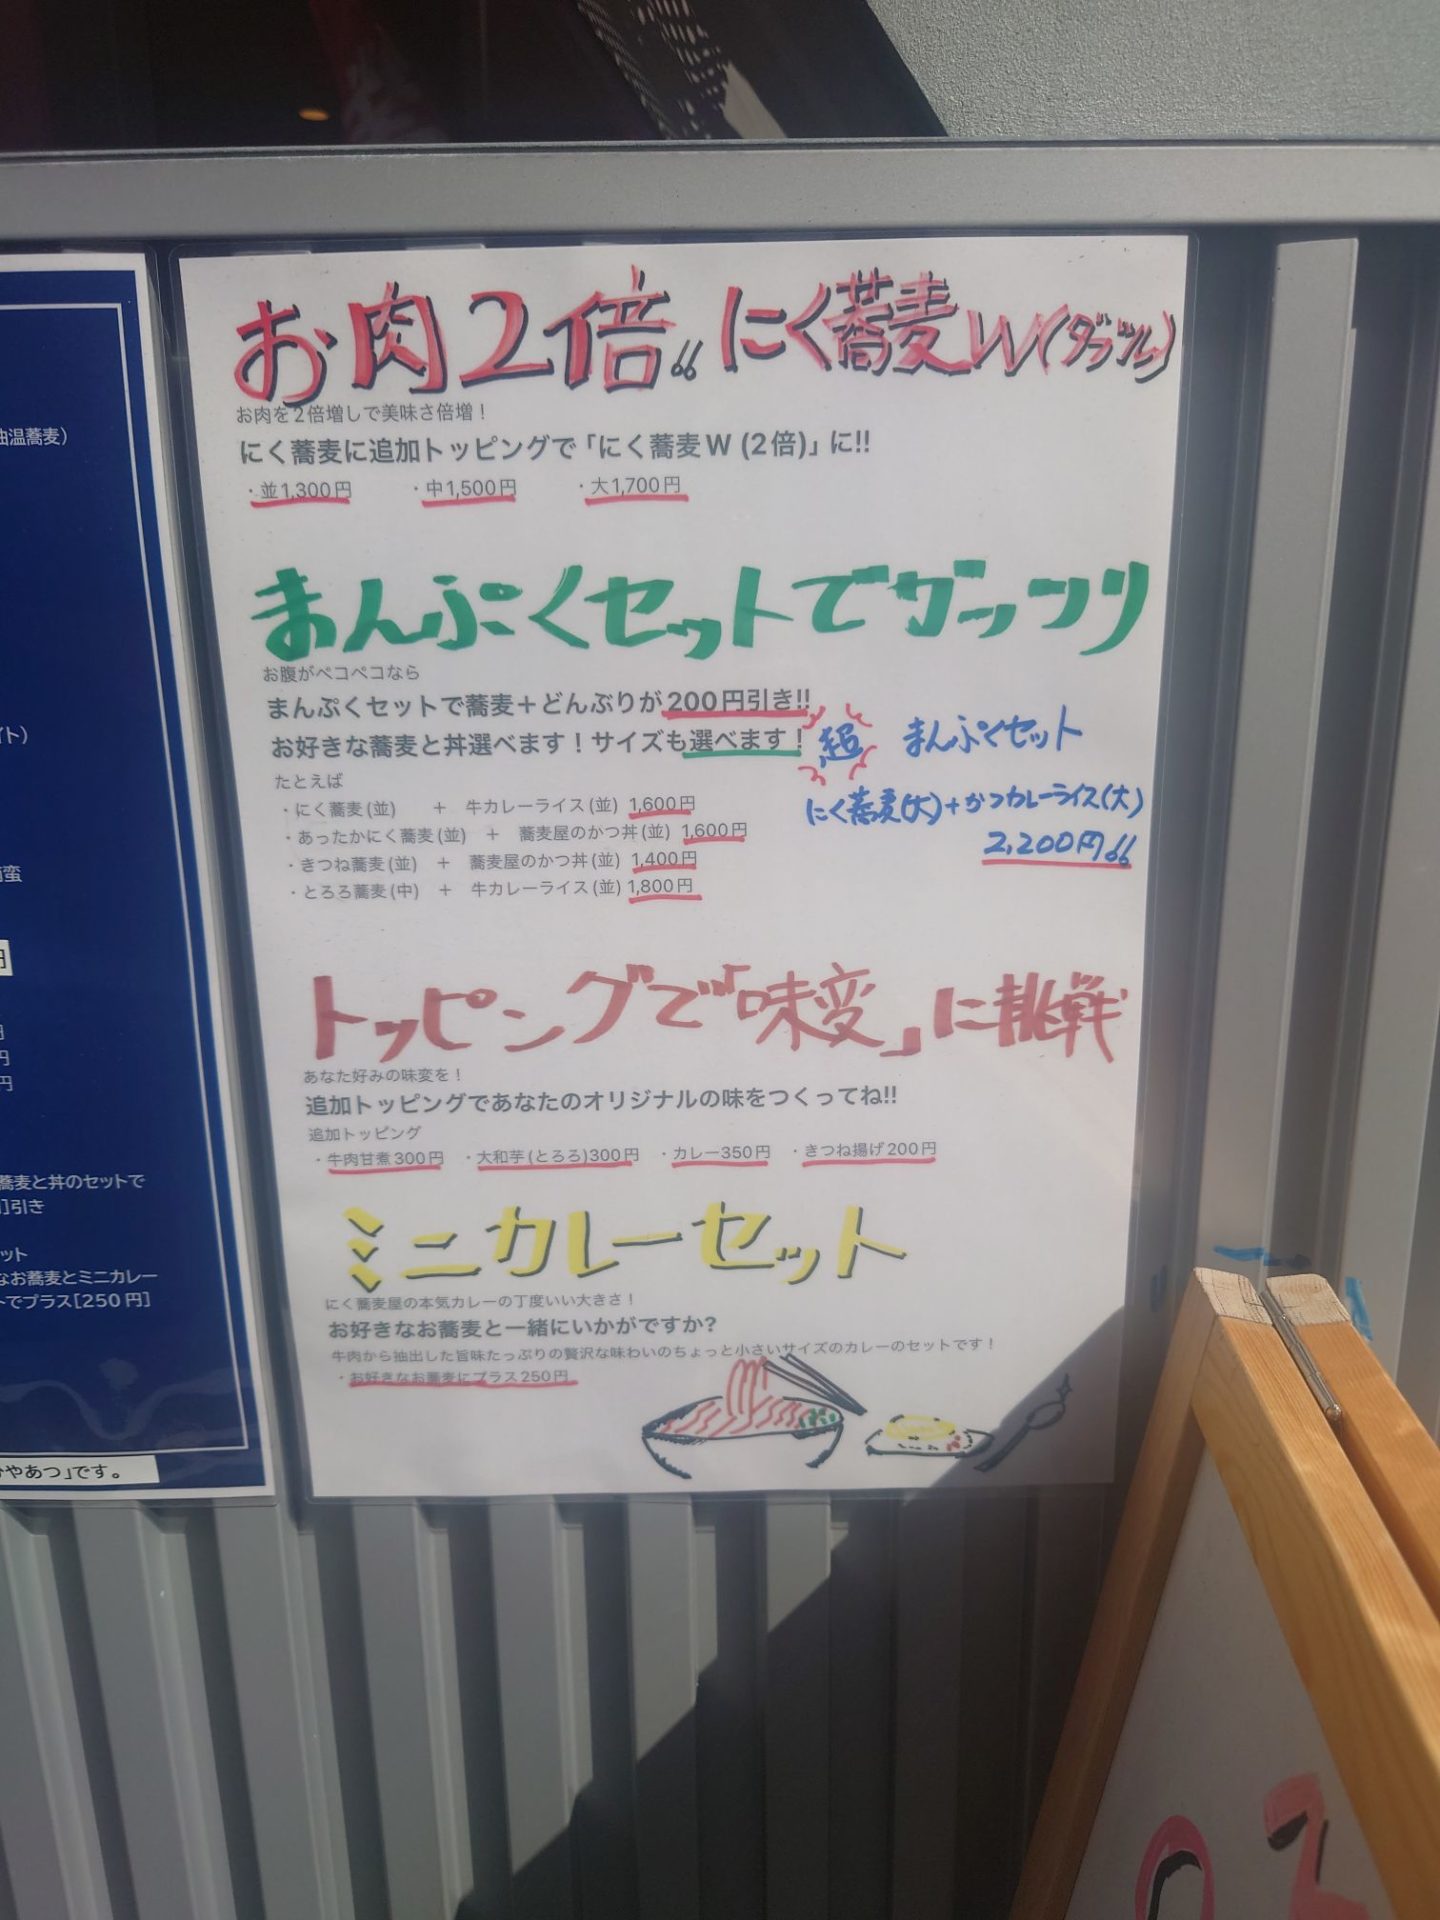 油温蕎麦)
イト)
円
円
円
円
蕎麦と丼のセットで
]引き
ット
なお蕎麦とミニカレー
トでプラス[250円]
ひやあつ」です。
お肉2倍!! にく蕎麦W(ダブル)
お肉を2倍増しで美味さ倍増!
にく蕎麦に追加トッピングで「にく蕎麦W (2倍)」に!!
・並1,300円 ・中1,500円 ・大1,700円
まんぷくセットでガッツリ
お腹がペコペコなら
まんぷくセットで蕎麦+どんぶりが200円引き!!
お好きな蕎麦と丼選べます!サイズも選べます!
たとえば
・にく蕎麦(並) + 牛カレーライス(並) 1,600円
・あったかにく蕎麦(並) + 蕎麦屋のかつ丼(並) 1,600円
・きつね蕎麦(並) + 蕎麦屋のかつ丼(並) 1,400円
・とろろ蕎麦(中) + 牛カレーライス(並) 1,800円
超 まんぷくセット
にく蕎麦(大)+かつカレーライス(大)
2,200円!!
トッピングで「味変」に挑戦
あなた好みの味変を!
追加トッピングであなたのオリジナルの味をつくってね!!
追加トッピング
・牛肉甘煮300円 ・大和芋(とろろ)300円 ・カレー350円 ・きつね揚げ200円
ミニカレーセット
にく蕎麦屋の本気カレーの丁度いい大きさ!
お好きなお蕎麦と一緒にいかがですか?
牛肉から抽出した旨味たっぷりの贅沢な味わいのちょっと小さいサイズのカレーのセットです!
・お好きなお蕎麦にプラス250円